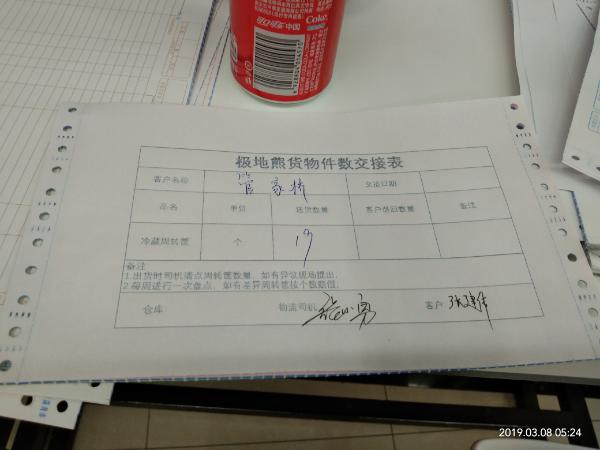 中国
Coke
极地熊货物件数交接表
客户名称 管家桥 交接日期
品名 单位 送货数量 客户退回数量 备注
冷藏周转筐 个 19
备注
1.出货时司机请点周转筐数量，如有异议现场提出.
2.每周进行一次盘点，如有差异周转筐按个数赔偿.
仓库 物流司机 客户 张建伟
2019.03.08 05:24